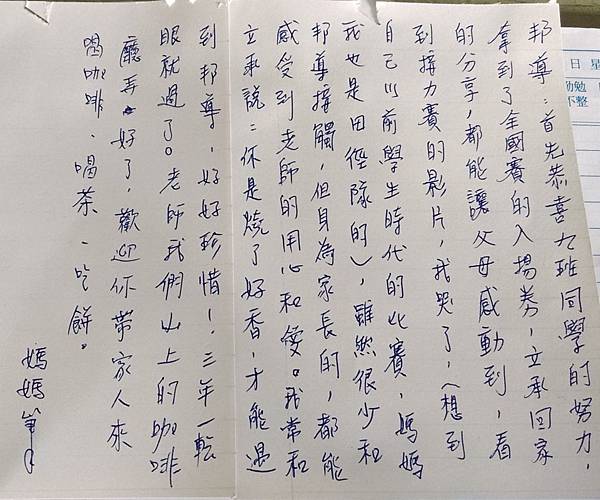 邦導：首先恭喜九班同學的努力，
拿到了全國賽的入場券，立承回家
的分享，都能讓父母感動到，看
到接力賽的影片，我哭了，（想到
自己以前學生時代的比賽，媽媽
我也是田徑隊的），雖然很少和
邦導接觸，但身為家長的，都能
感受到老師的用心和愛。我常和
立承說：你是燒了好香，才能遇
到邦導，好好珍惜！三年一転
眼就過了。老師我們山上的咖啡
廳弄好了，歡迎你帶家人來
喝咖啡、喝茶、吃餅。
媽媽筆
日 星
勤勉
不整